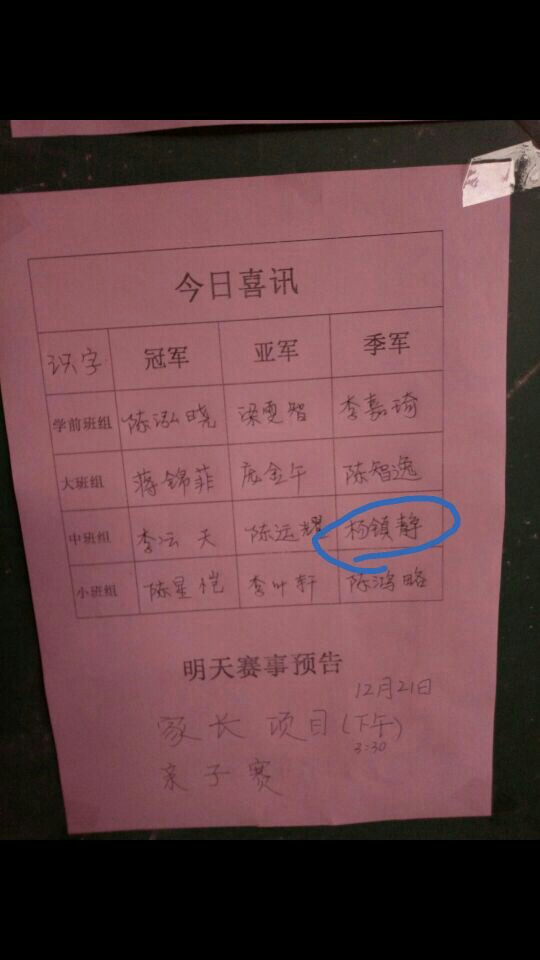 今日喜讯
识字 冠军 亚军 季军
学前班组 陈泓晓 梁雯智 李嘉琦
大班组 蒋锦菲 庞金午 陈智逸
中班组 李沄天 陈运耀 杨镇静
小班组 陈星恺 李叶轩 陈鸿略
明天赛事预告
12月21日
家长项目(下午)
3:30
亲子赛